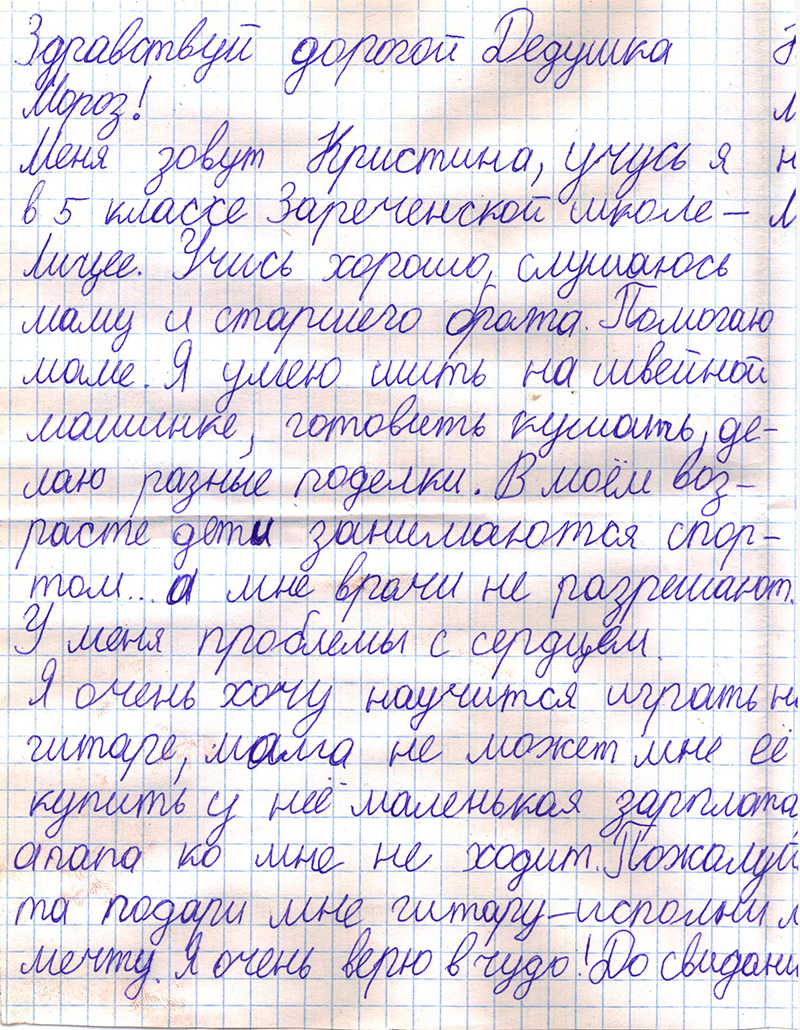 Здравствуй дорогой Дедушка
Мороз!
Меня зовут Кристина, учусь я
в 5 классе Зареченской школе-
Лицее. Учись хорошо, слушаюсь
маму и старшего брата. Помогаю
маме. Я умею шить на швейной
машинке, готовить кушать, де-
лаю разные поделки. В моём воз-
расте дети занимаются спор-
том... а мне врачи не разрешают.
У меня проблемы с сердцем.
Я очень хочу научится играть на
гитаре, мама не может мне её
купить у неё маленькая зарплата
апапа ко мне не ходит. Пожалуй
та подари мне гитару-исполни м
мечту. Я очень верю в чудо! До свидани